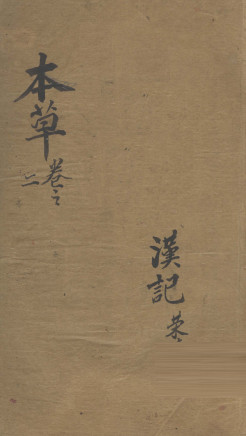 本草
卷之二
漢記